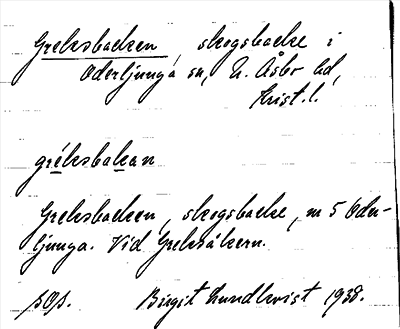 Greksbacken, skogsbacke i
Oderljunga sn, N. Åsbo hd,
Krist. l.
gréksbakan
Greksbacken, skogsbacke, m 5 Oder-
ljunga. Vid Greksåkern.
sOs. Birgit Lundkvist 1938.